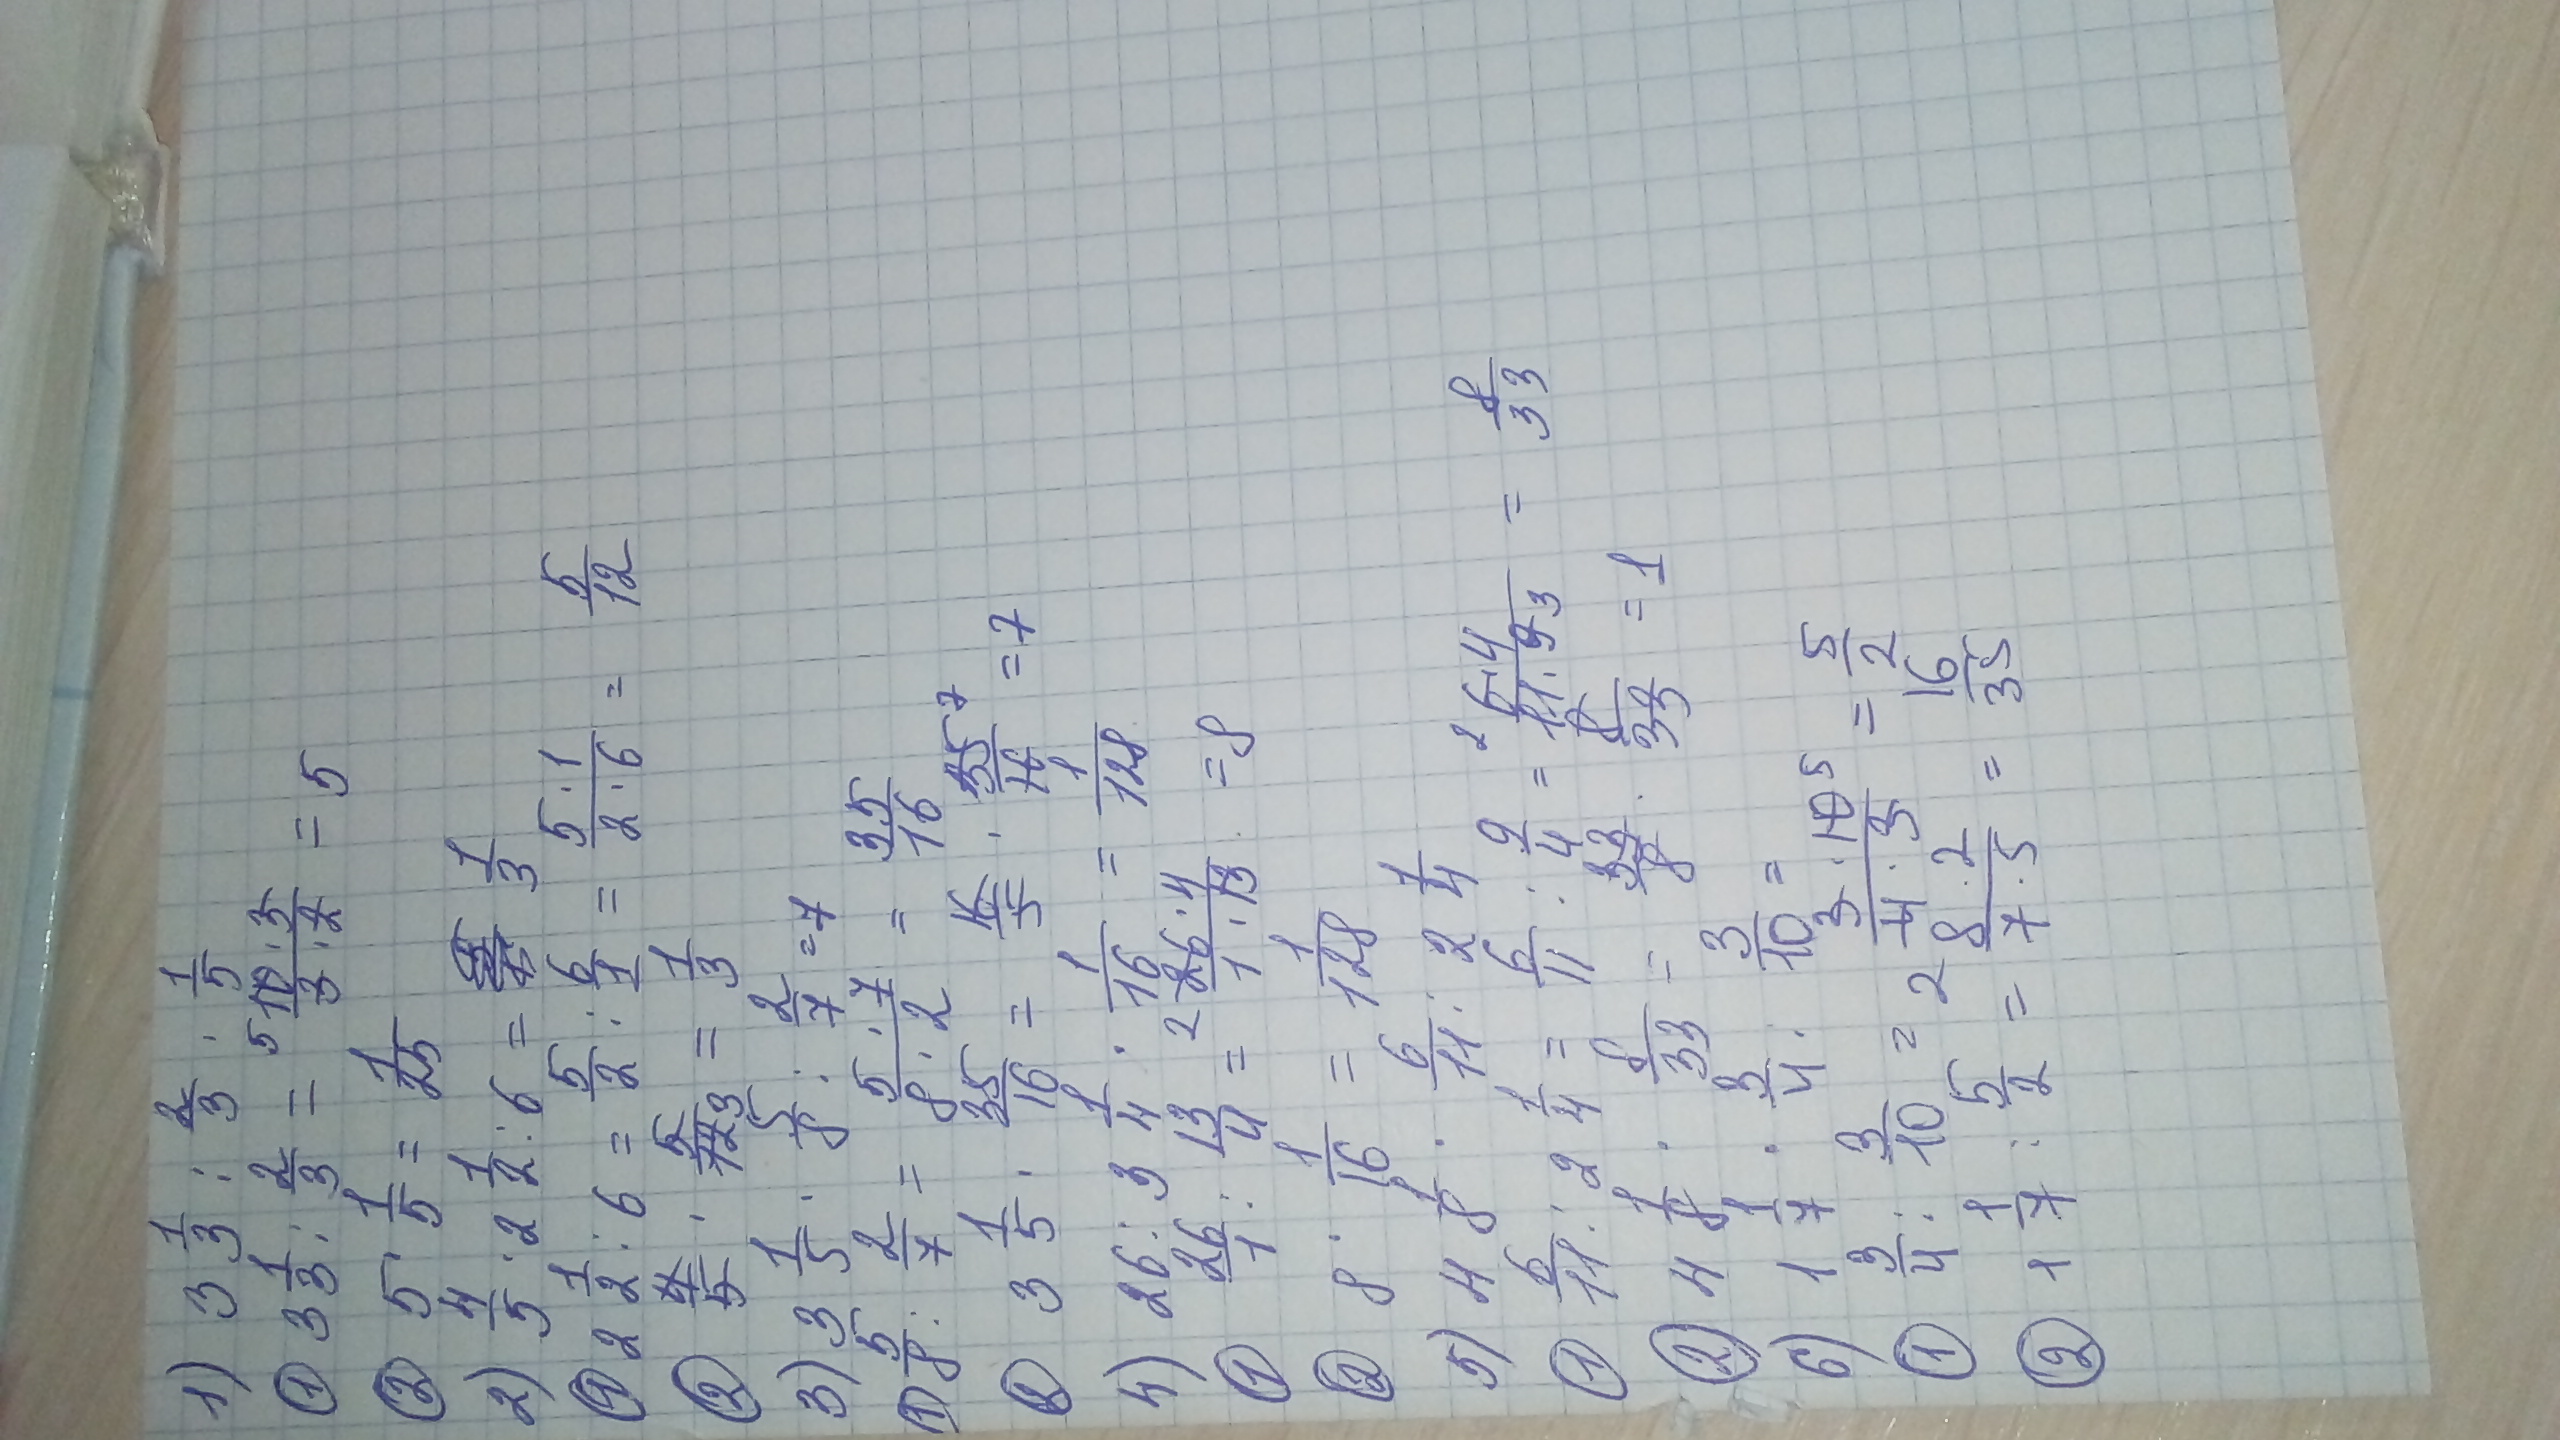 1) 3 1/3 : 2/3 : 1/5
① 3 1/3 : 2/3 = 5 10·3/3·2 = 5
② 5 : 1/5 = 1/25
2) 4/5 : 2 1/2 : 6 = 1/3
① 2 1/2 : 6 = 5/2 : 6/1 = 5·1/2·6 = 5/12
② 4/5 : 5/12 3 = 1/3
3) 3 1/5 : 5/8 : 2/7 = 7
① 5/8 : 2/7 = 5·7/8·2 = 35/16
② 3 1/5 · 35/16 = 16/5 · 35/16 7 = 7
4) 26 : 3 1/4 · 1/16 = 1/128
① 26/1 : 13/4 = 2 26·4/1·13 = 8
② 8 · 1/16 = 1/128
5) 4 1/8 · 6/11 : 2 1/4
① 6/11 : 2 1/4 = 6/11 : 9/4 = 2 6·4/11·9 3 = 8/33
② 4 1/8 · 8/33 = 33/8 · 8/33 = 1
6) 1 1/7 · 3/4 · 3/10 =
① 3/4 : 3/10 = 2 3·10 5/4·3 = 5/2
② 1 1/7 : 5/2 = 8·2/7·5 = 16/35